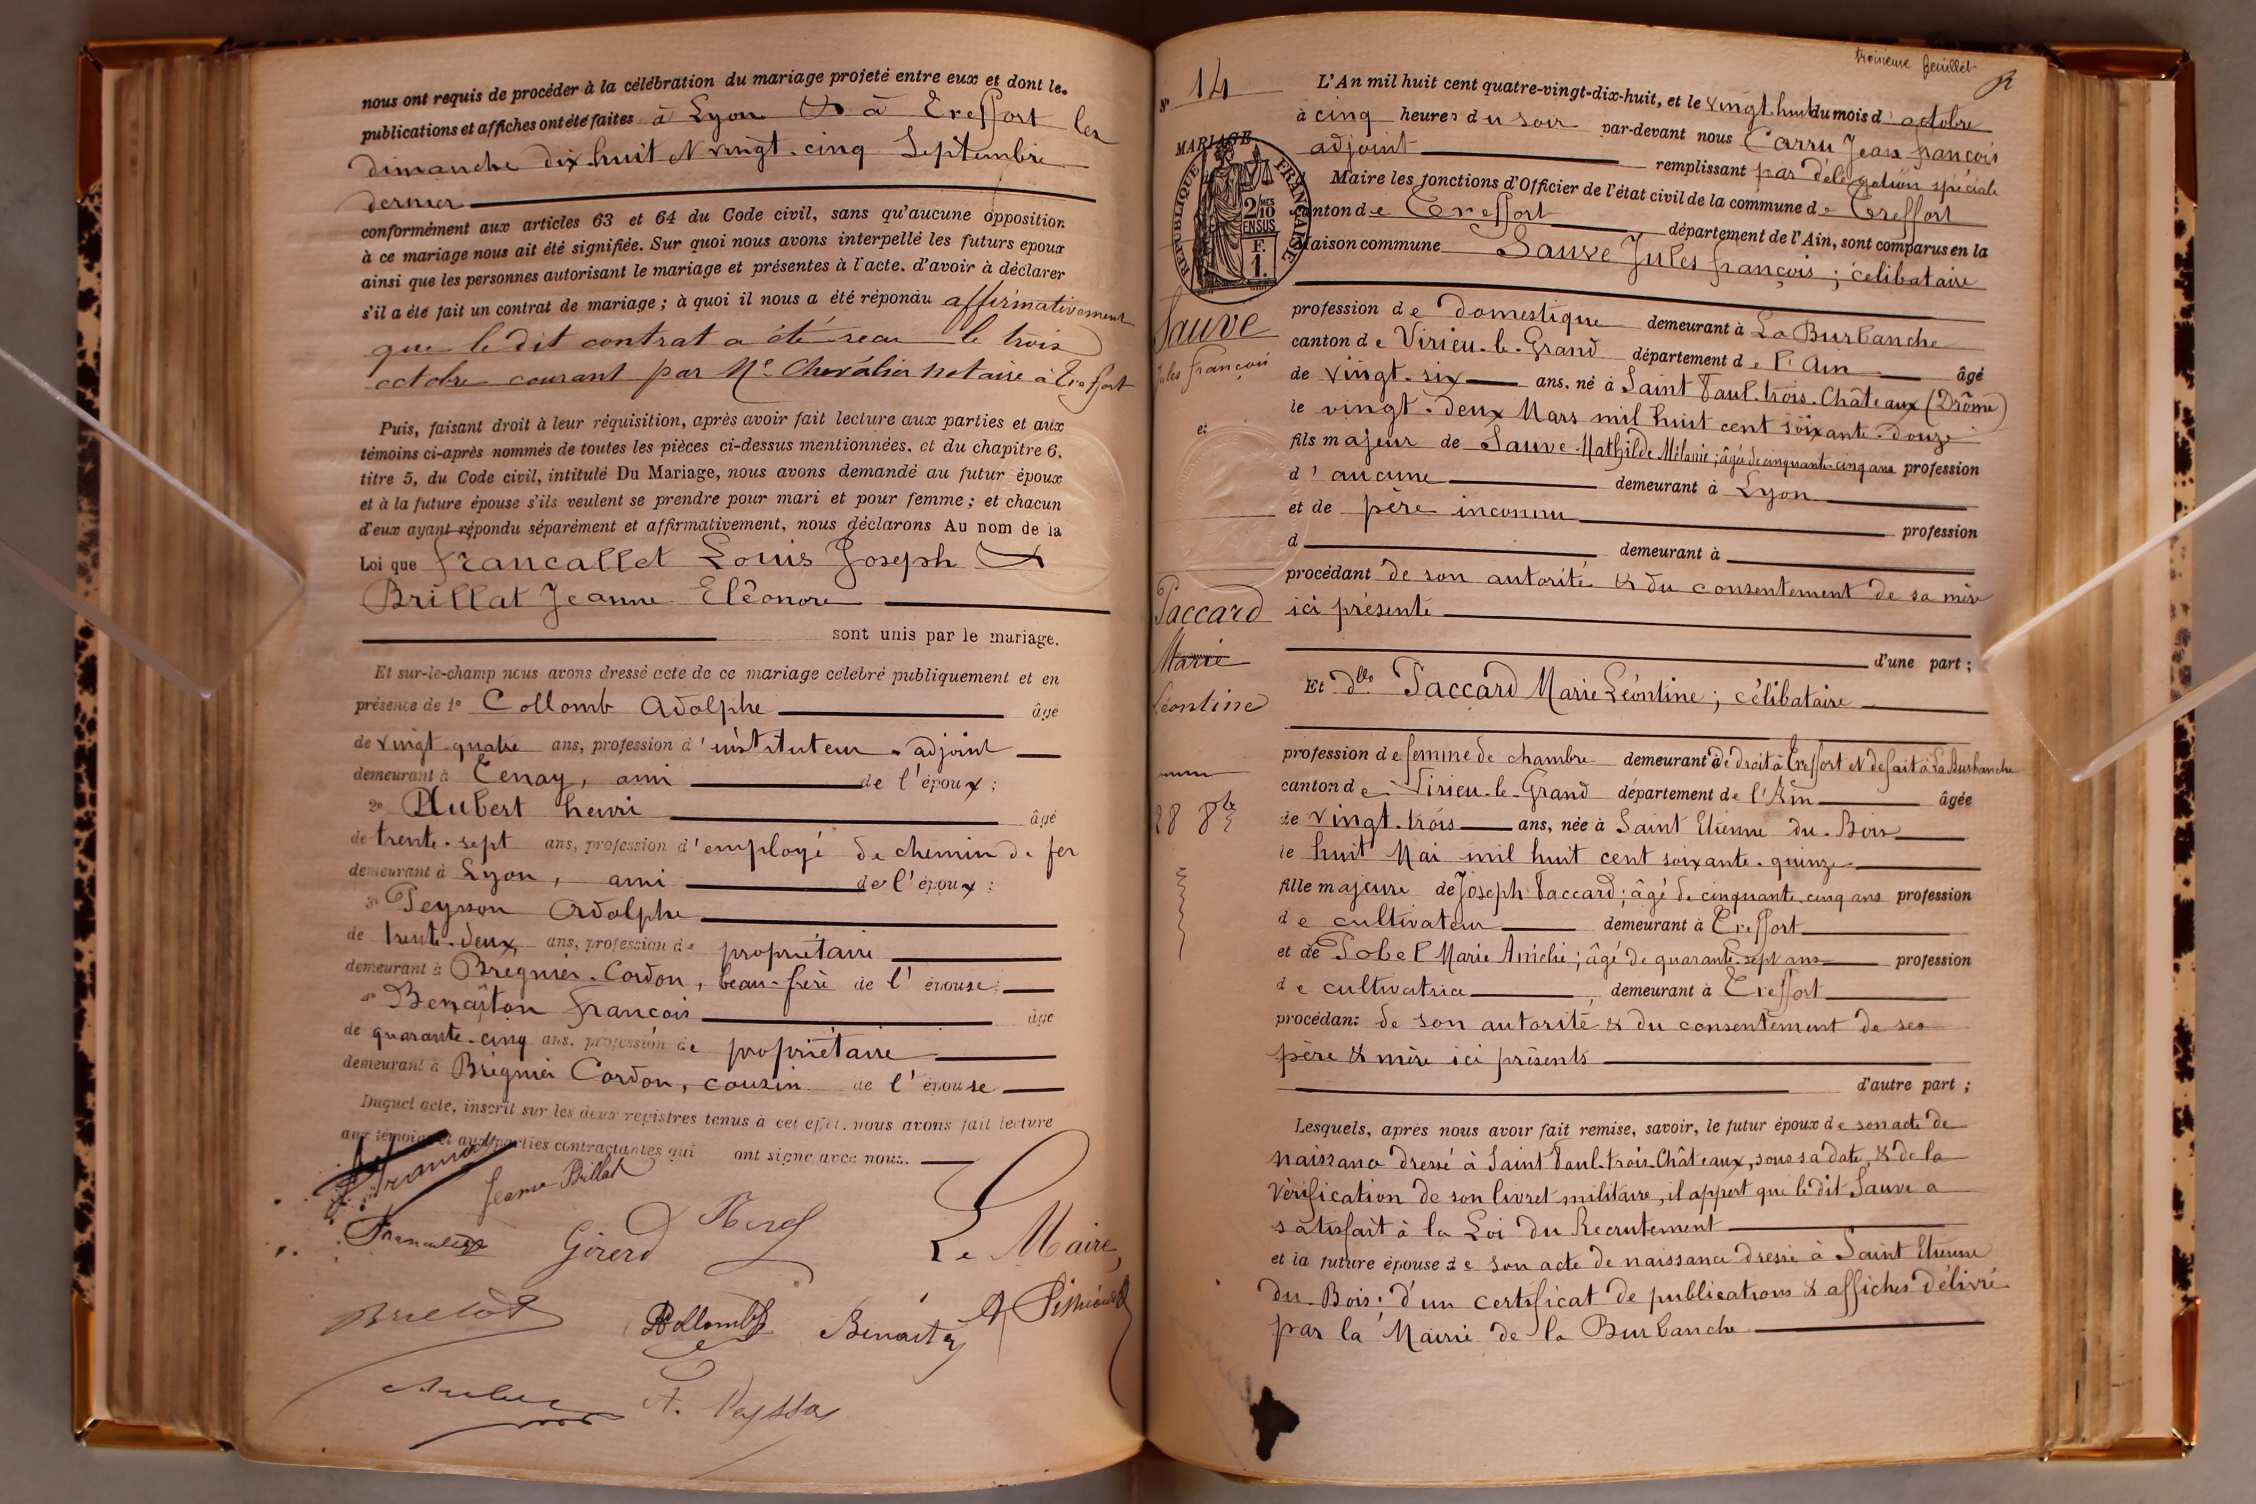 nous ont requis de procéder à la célébration du mariage projeté entre eux et dont les
publications et affiches ont été faites à Lyon & à Treffort les
dimanche dix-huit et vingt-cinq Septembre
dernier
conformément aux articles 63 et 64 du Code civil, sans qu'aucune opposition
à ce mariage nous ait été signifiée. Sur quoi nous avons interpellé les futurs epoux
ainsi que les personnes autorisant le mariage et présentes à l'acte. d'avoir à déclarer
s'il a été fait un contrat de mariage; à quoi il nous a été répondu affirmativement
que le dit contrat a été reçu le trois
octobre courant par Me Chevalier notaire à Treffort
Puis, faisant droit à leur réquisition, après avoir fait lecture aux parties et aux
témoins ci-après nommés de toutes les pièces ci-dessus mentionnées, et du chapitre 6,
titre 5, du Code civil, intitulé Du Mariage, nous avons demandé au futur époux
et à la future épouse s'ils veulent se prendre pour mari et pour femme; et chacun
d'eux ayant répondu séparément et affirmativement, nous déclarons Au nom de la
Loi que Francallet Louis Joseph &
Brillat Jeanne Eléonore
sont unis par le mariage.
Et sur-le-champ nous avons dressé acte de ce mariage célébré publiquement et en
présence de 1° Collomb Adolphe âgé
de vingt-quatre ans, profession d'instituteur-adjoint
demeurant à Tenay, ami de l'époux;
2° Hubert henri âgé
de trente-sept ans, profession d'employé de chemin de fer
demeurant à Lyon, ami de l'époux;
3° Peysson Adolphe
de trente-deux ans, profession de propriétaire
demeurant à Brégnier-Cordon, beau-frère de l'épouse;
4° Benaiton François âgé
de quarante-cinq ans, profession de propriétaire
demeurant à Brégnier Cordon, cousin de l'épouse
Duquel acte, inscrit sur les deux registres tenus à cet effet, nous avons fait lecture
aux témoins et aux parties contractantes qui ont signé avec nous.
Jeanne Brillat
Girerd
Le Maire,
Collomb
A. Peysson
troisième feuillet
N° 14
L'An mil huit cent quatre-vingt-dix-huit, et le vingt-huit du mois d'octobre
à cinq heures du soir par-devant nous Carru Jean françois
adjoint remplissant par délégation spéciale
Maire les fonctions d'Officier de l'état civil de la commune de Treffort
canton de Treffort département de l'Ain, sont comparus en la
Maison commune Sauve Jules françois; célibataire
MARIAGE
RÉPUBLIQUE FRANÇAISE
2/10 MES
EN SUS
F.
1.
Sauve
Jules françois
et
Paccard
Marie
Léontine
28 8bre
profession de domestique demeurant à La Burbanche
canton de Virieu-le-Grand département de l'Ain âgé
de vingt-six ans, né à Saint Paul-trois-Châteaux (Drôme)
le vingt-deux Mars mil huit cent soixante-douze
fils majeur de Sauve Mathilde Mélanie; âgée de cinquante-cinq ans profession
d'aucune demeurant à Lyon
et de père inconnu profession
d demeurant à
procédant de son autorité & du consentement de sa mère
ici présente
d'une part;
Et Dlle Paccard Marie Léontine; célibataire
profession de femme de chambre demeurant de droit à Treffort et de fait à La Burbanche
canton de Virieu-le-Grand département de l'Ain âgée
de vingt-trois ans, née à Saint Etienne du-Bois
le huit Mai mil huit cent soixante-quinze
fille majeure de Joseph Paccard; âgé de cinquante cinq ans profession
de cultivateur demeurant à Treffort
et de Pobel Marie; âgé de quarante-sept ans profession
de cultivatrice demeurant à Treffort
procédant de son autorité & du consentement de ses
père & mère ici présents
d'autre part;
Lesquels, après nous avoir fait remise, savoir, le futur époux de son acte de
naissance dressé à Saint Paul-trois-Châteaux, sous sa date, & de la
vérification de son livret militaire, il appert que le dit Sauve a
satisfait à la Loi du Recrutement
et la future épouse de son acte de naissance dressé à Saint Etienne
du-Bois; d'un certificat de publications & affiches délivré
par la Mairie de la Burbanche